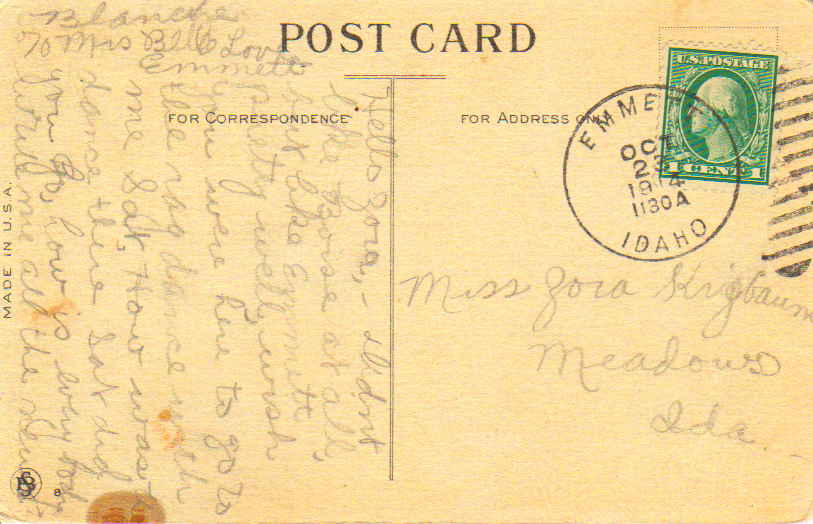 POST CARD
FOR CORRESPONDENCE
FOR ADDRESS ONLY
U.S. POSTAGE
1 CENTS 1
EMMETT
OCT
23
1914
1130A
IDAHO
Miss Zora Krigbaum
Meadows
Ida.
Hello Zora,- Didnt
like Boise at all,
but like Emmett
pretty well, wish
you were here to go to
the rag dance with
me Sat. How was
dance there Sat did
you go, how is everybody
write me all the news
Blanche
c/o Mrs Belle Love
Emmett
MADE IN U.S.A.
8